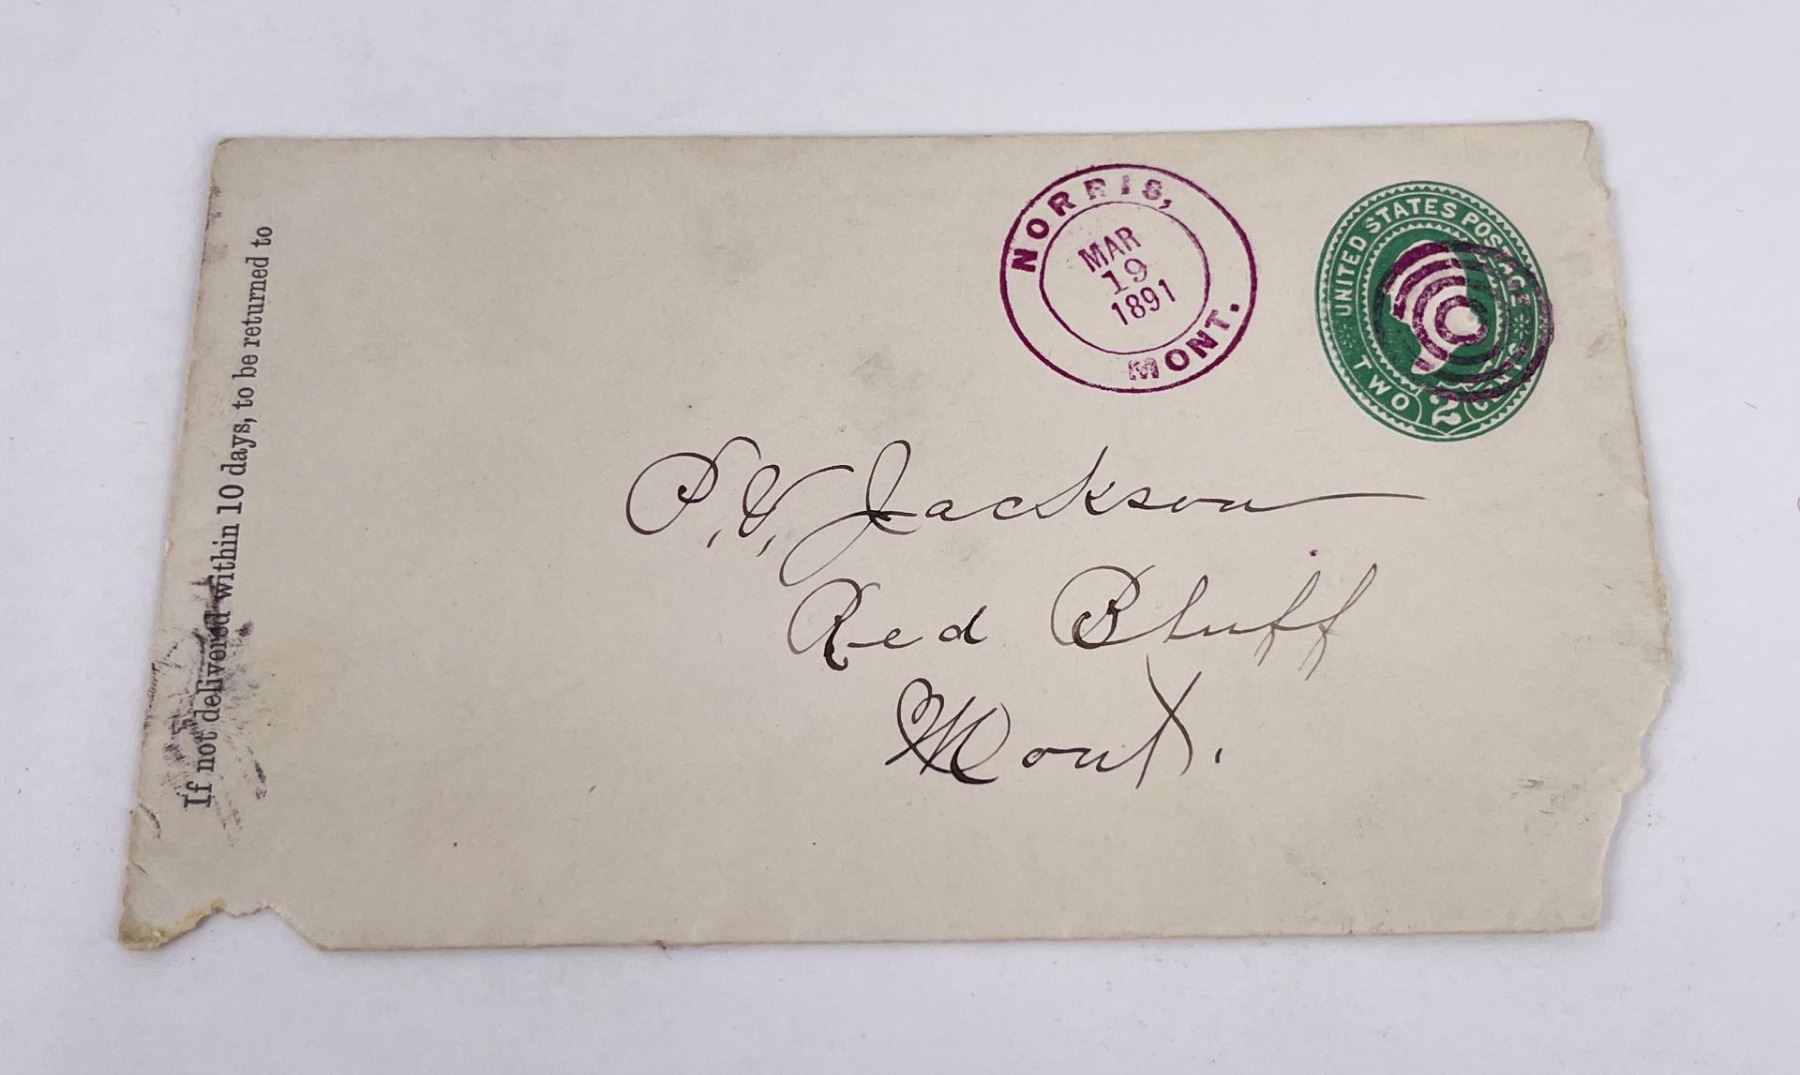 If not delivered within 10 days, to be returned to
NORRIS,
MAR
19
1891
MONT.
UNITED STATES POSTAGE
TWO 2 CENTS
P. V. Jackson
Red Bluff
Mont.